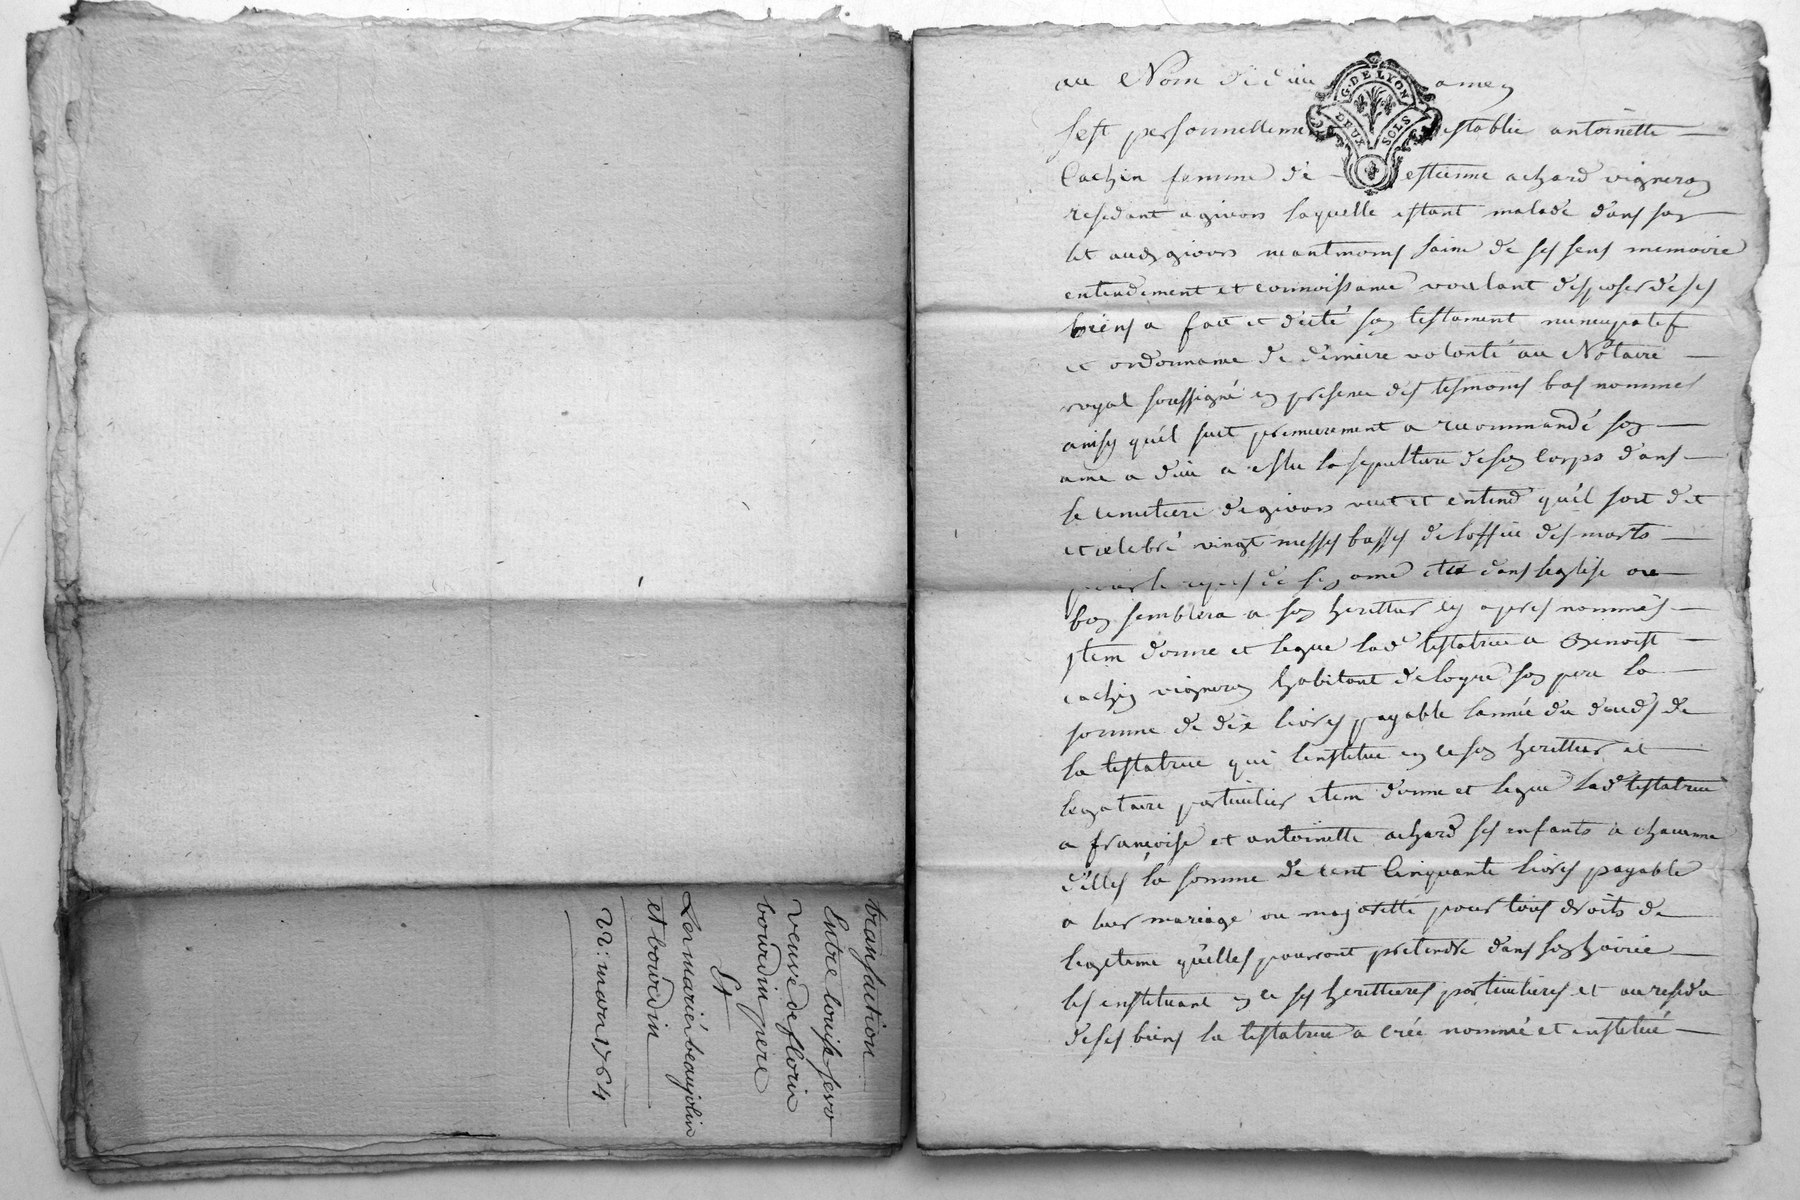 transaction
Entre louise fero
veuve de florin
bourdin pere
Et
Les mariés beaujolin
et bourdin
22: mars 1764
au Nom de dieu amen
G. DE LYON
DEUX SOLS
sest personnellement establie antoinette
Cachin femme de estienne achard vigneron
residant a givors laquelle estant malade dans son
lit aud givors neantmoins saine de ses sens memoire
entendement et connoissance voulant disposer de ses
biens a fait et dicté son testament nuncupatif
et ordonnance de derniere volonté au Notaire
royal soussigné en presence des tesmoins bas nommés
ainsy quil suit premierement a recommandé son
ame a dieu a eslu la sepulture de son corps dans
le cimetiere de givors veut et entend quil soit dit
et celebré vingt messes basses de loffice des morts
pour le repos de son ame dans leglise ou
bon semblera a son heritier cy apres nommés
item donne et legue lad testatrice a Benoist
cachin vigneron habitant de loyre son pere la
somme de dix livres payable lannée du deceds de
la testatrice qui linstitue en ce son heritier et
legataire particulier item donne et legue lad testatrice
a françoise et antoinette achard ses enfants a chacunne
delles la somme de cent cinquante livres payable
a leur mariage ou majorette pour tous droits de
legitime quelles pourront pretendre dans son hoirie
les instituant en ce ses heritieres particulieres et au residu
de ses biens la testatrice a créé nommé et institué